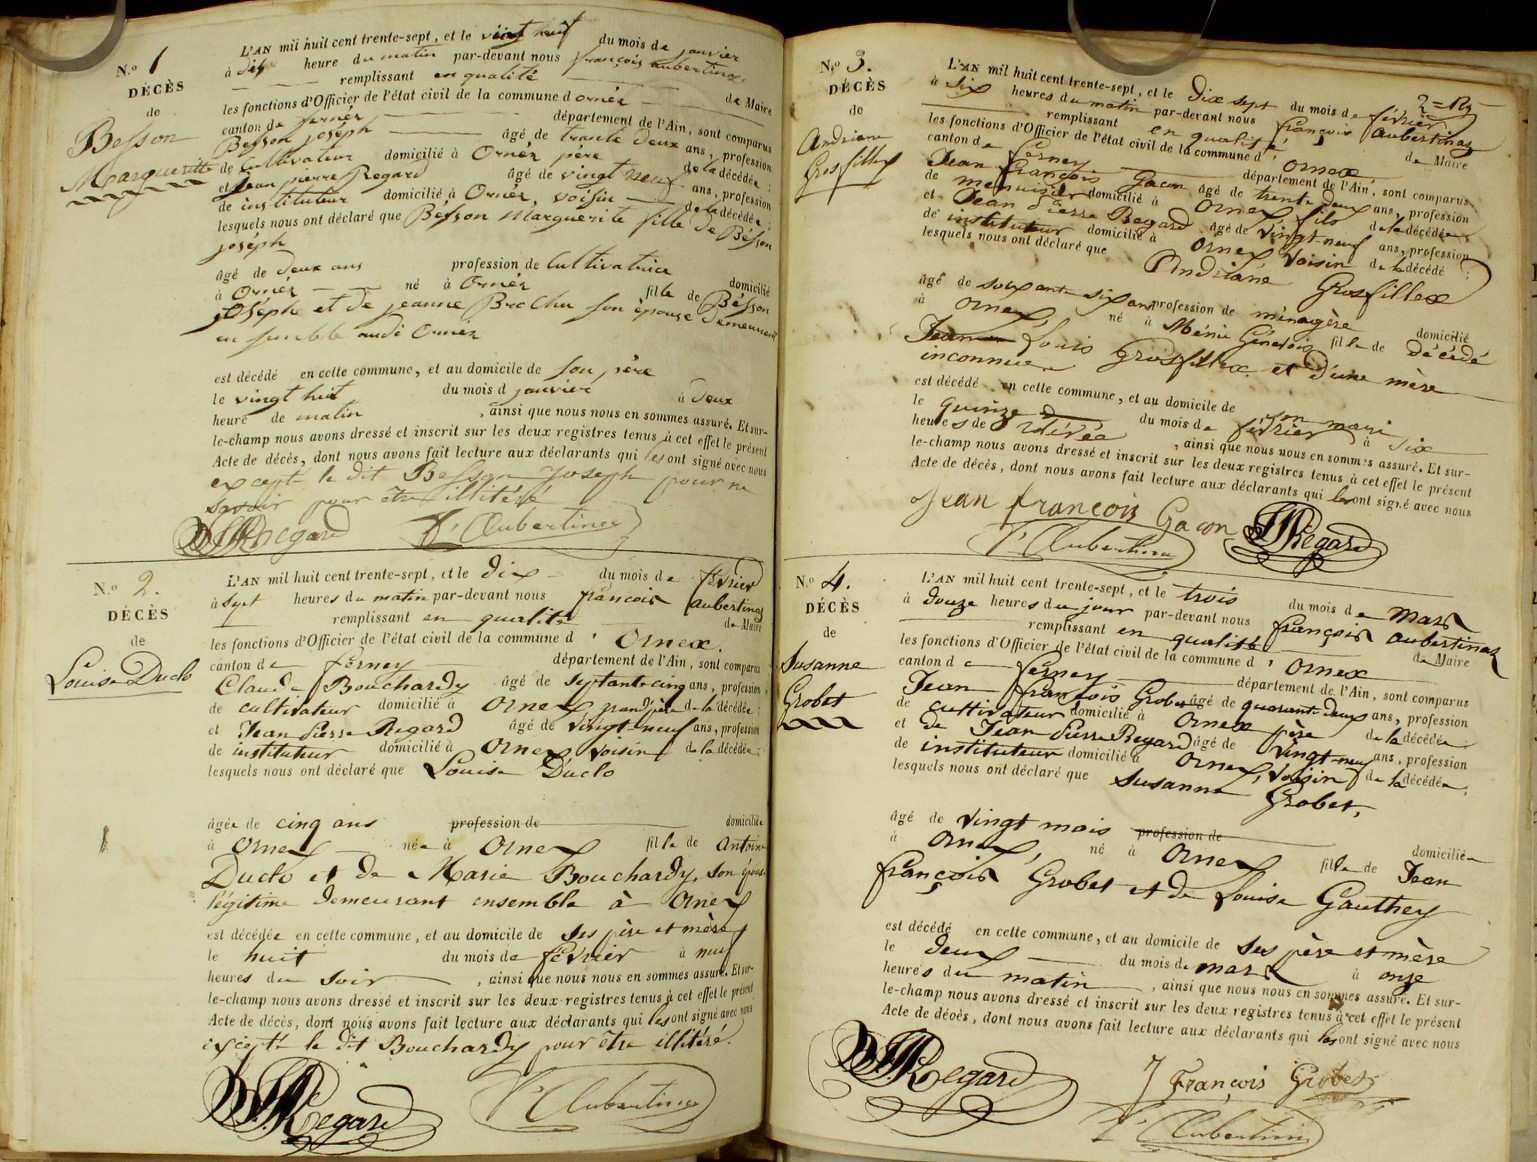 N.o 1
DÉCÈS
de
Besson
Marguerite
L'AN mil huit cent trente-sept, et le vingt neuf du mois de janvier
à dix heure du matin par-devant nous françois aubertinaz
remplissant en qualité de Maire
les fonctions d'Officier de l'état civil de la commune d ornéx
canton de fernéx département de l'Ain, sont comparus
Besson joséph âgé de trante deux ans, profession
de Cultivateur domicilié à Ornéx père de la décédée ;
et Jean pierre Regard âgé de vingt neuf ans, profession
de instituteur domicilié à Ornéx, voisin de la décédée ;
lesquels nous ont déclaré que Bésson Marguerite fille de Bésson
joséph
âgé de deux ans profession de Cultivatrice domicilié
à Ornéx né à Ornéx fille de Bésson
joséph et de jeanne Brochu son épouse demeurant
ensemble audit Ornéx
est décédé en cette commune, et au domicile de son père
le vingt huit du mois d janvier à deux
heure de matin , ainsi que nous nous en sommes assuré. Et sur-
le-champ nous avons dressé et inscrit sur les deux registres tenus à cet effet le présent
Acte de décès, dont nous avons fait lecture aux déclarants qui les ont signé avec nous
excepté le dit Besson Joseph pour ne
savoir pour être illitéré
JPRegard fs Aubertinaz
N.o 2.
DÉCÈS
de
Louise Duclo
L'AN mil huit cent trente-sept, et le dix du mois de février
à sept heures du matin par-devant nous françois aubertinaz
remplissant en qualité de Maire
les fonctions d'Officier de l'état civil de la commune d' Ornex.
canton de férney département de l'Ain, sont comparus
Claude Bouchardy âgé de septante cinq ans, profession
de cultivateur domicilié à Ornex grand père de la décédée ;
et Jean Pierre Regard âgé de vingt-neuf ans, profession
de instituteur domicilié à Ornex voisin de la décédée ;
lesquels nous ont déclaré que Louise Duclo
âgée de cinq ans profession de domiciliée
à Ornex née à Ornex fille de Antoine
Duclo et de Marie Bouchardy, son épouse
légitime demeurant ensemble à Ornex
est décédée en cette commune, et au domicile de ses père et mère
le huit du mois de février à neuf
heures du soir , ainsi que nous nous en sommes assuré. Et sur-
le-champ nous avons dressé et inscrit sur les deux registres tenus à cet effet le présent
Acte de décès, dont nous avons fait lecture aux déclarants qui les ont signé avec nous
excepté le dit Bouchardy pour être illitéré.
JPRegard fs Aubertinaz
N.o 3.
DÉCÈS
de
Andriane
Grosfillex
L'AN mil huit cent trente-sept, et le dix sept du mois de février
à six heures du matin par-devant nous françois aubertinaz
remplissant en qualité de Maire
les fonctions d'Officier de l'état civil de la commune d' Ornex
canton de Férney département de l'Ain, sont comparus
Jean François Gacon âgé de trente deux ans, profession
de menuisier domicilié à Ornex, fils de la décédée
et Jean Pierre Regard âgé de vingt-neuf ans, profession
de instituteur domicilié à Ornex voisin de la décédé ;
lesquels nous ont déclaré que Andriane Grosfillex
âgé de soixante six ans profession de ménagère domicilié
à Ornex, né à Ménie Génevois fille de décédé
Jean Louis Grosfillex et d'une mère
inconnue
est décédé en cette commune, et au domicile de son mari
le quinze du mois de février à six
heures de , ainsi que nous nous en sommes assuré. Et sur-
le-champ nous avons dressé et inscrit sur les deux registres tenus à cet effet le présent
Acte de décès, dont nous avons fait lecture aux déclarants qui les ont signé avec nous
Jean françois Gacon JPRegard
fs Aubertinaz
N.o 4.
DÉCÈS
de
Susanne
Grobet
L'AN mil huit cent trente-sept, et le trois du mois de mars
à douze heures du jour par-devant nous françois aubertinaz
remplissant en qualité de Maire
les fonctions d'Officier de l'état civil de la commune d' Ornex
canton de férney département de l'Ain, sont comparus
Jean françois Grobet âgé de quarante deux ans, profession
de cultivateur domicilié à Ornex père de la décédée
et de Jean Pierre Regard âgé de vingt-neuf ans, profession
de instituteur domicilié à Ornex, voisin de la décédée ;
lesquels nous ont déclaré que Susanne Grobet,
âgé de vingt mois profession de domiciliée
à Ornex, né à Ornex fille de Jean
françois Grobet et de Louise Gauthey
est décédé en cette commune, et au domicile de ses père et mère
le deux du mois de mars à onze
heures du matin , ainsi que nous nous en sommes assuré. Et sur-
le-champ nous avons dressé et inscrit sur les deux registres tenus à cet effet le présent
Acte de décès, dont nous avons fait lecture aux déclarants qui les ont signé avec nous
JPRegard J François Grobet
fs Aubertinaz